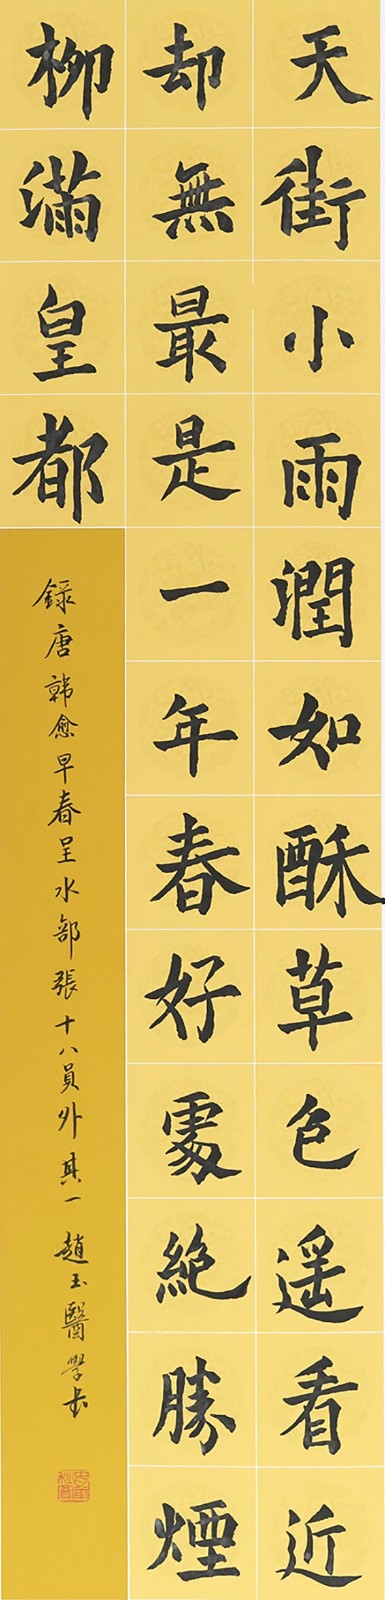 天街小雨潤如酥草色遥看近
却無最是一年春好處絶勝煙
柳滿皇都
録唐韓愈早春呈水部張十八員外其一趙玉醫學書